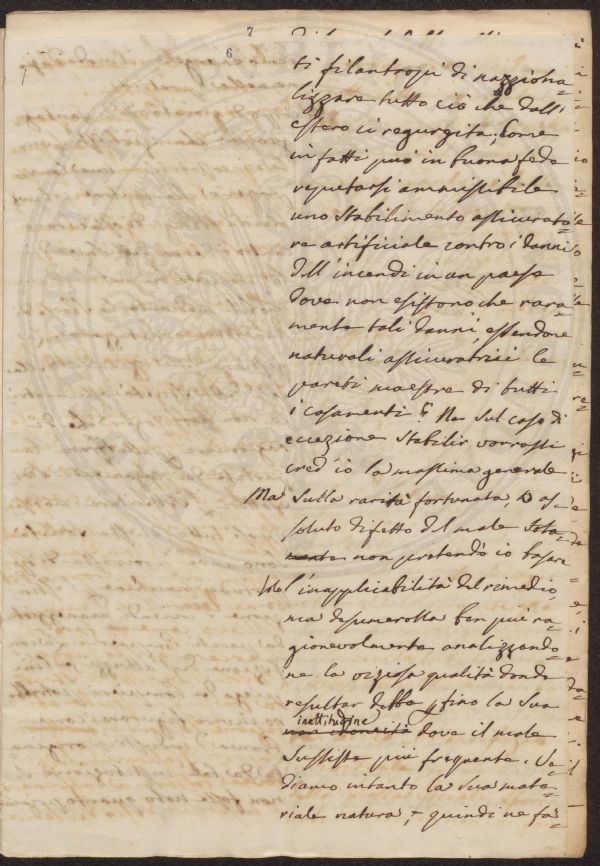 7
6
ti filantropi di nazziona=
lizzare tutto ciò che dall'
estero ci regurgita; Come
in fatti può in buona fede
reputarsi ammissibile
uno stabilimento assicurato=
re artificiale contro i danni
dell'incendi in un paese
dove non esistono che rara=
mente tali danni, essendone
naturali assicuratrici le
pareti maestre di tutti
i casamenti? Ne sul caso di
eccezione stabilir vorrassi
cred'io la massima generale
Ma sulla rarità fortunata, o as=
soluto difetto del male sola=
mente non pretendo io basare
sole l'inapplicabilità del rimedio
ma desumerolla ben più ra=
gionevolmente analizzando=
ne la viziosa qualità donde
resultar debba fino la sua
inattitudine
non idoneità dove il male
sussiste più frequente. Ve=
diamo intanto la sua mate=
riale natura, e quindi ne fa=